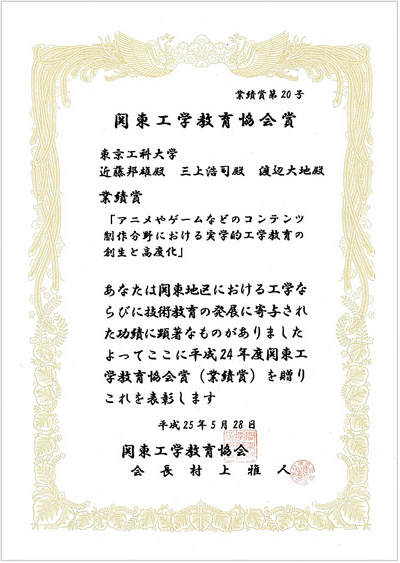 業績賞第20号
関東工学教育協会賞
東京工科大学
近藤邦雄殿 三上浩司殿 渡辺大地殿
業績賞
「アニメやゲームなどのコンテンツ
制作分野における実学的工学教育の
創生と高度化」
あなたは関東地区における工学な
らびに技術教育の発展に寄与され
た功績に顕著なものがありました
よってここに平成24年度関東工
学教育協会賞（業績賞）を贈り
これを表彰します
平成25年5月28日
関東工学教育協会
会長村上雅人